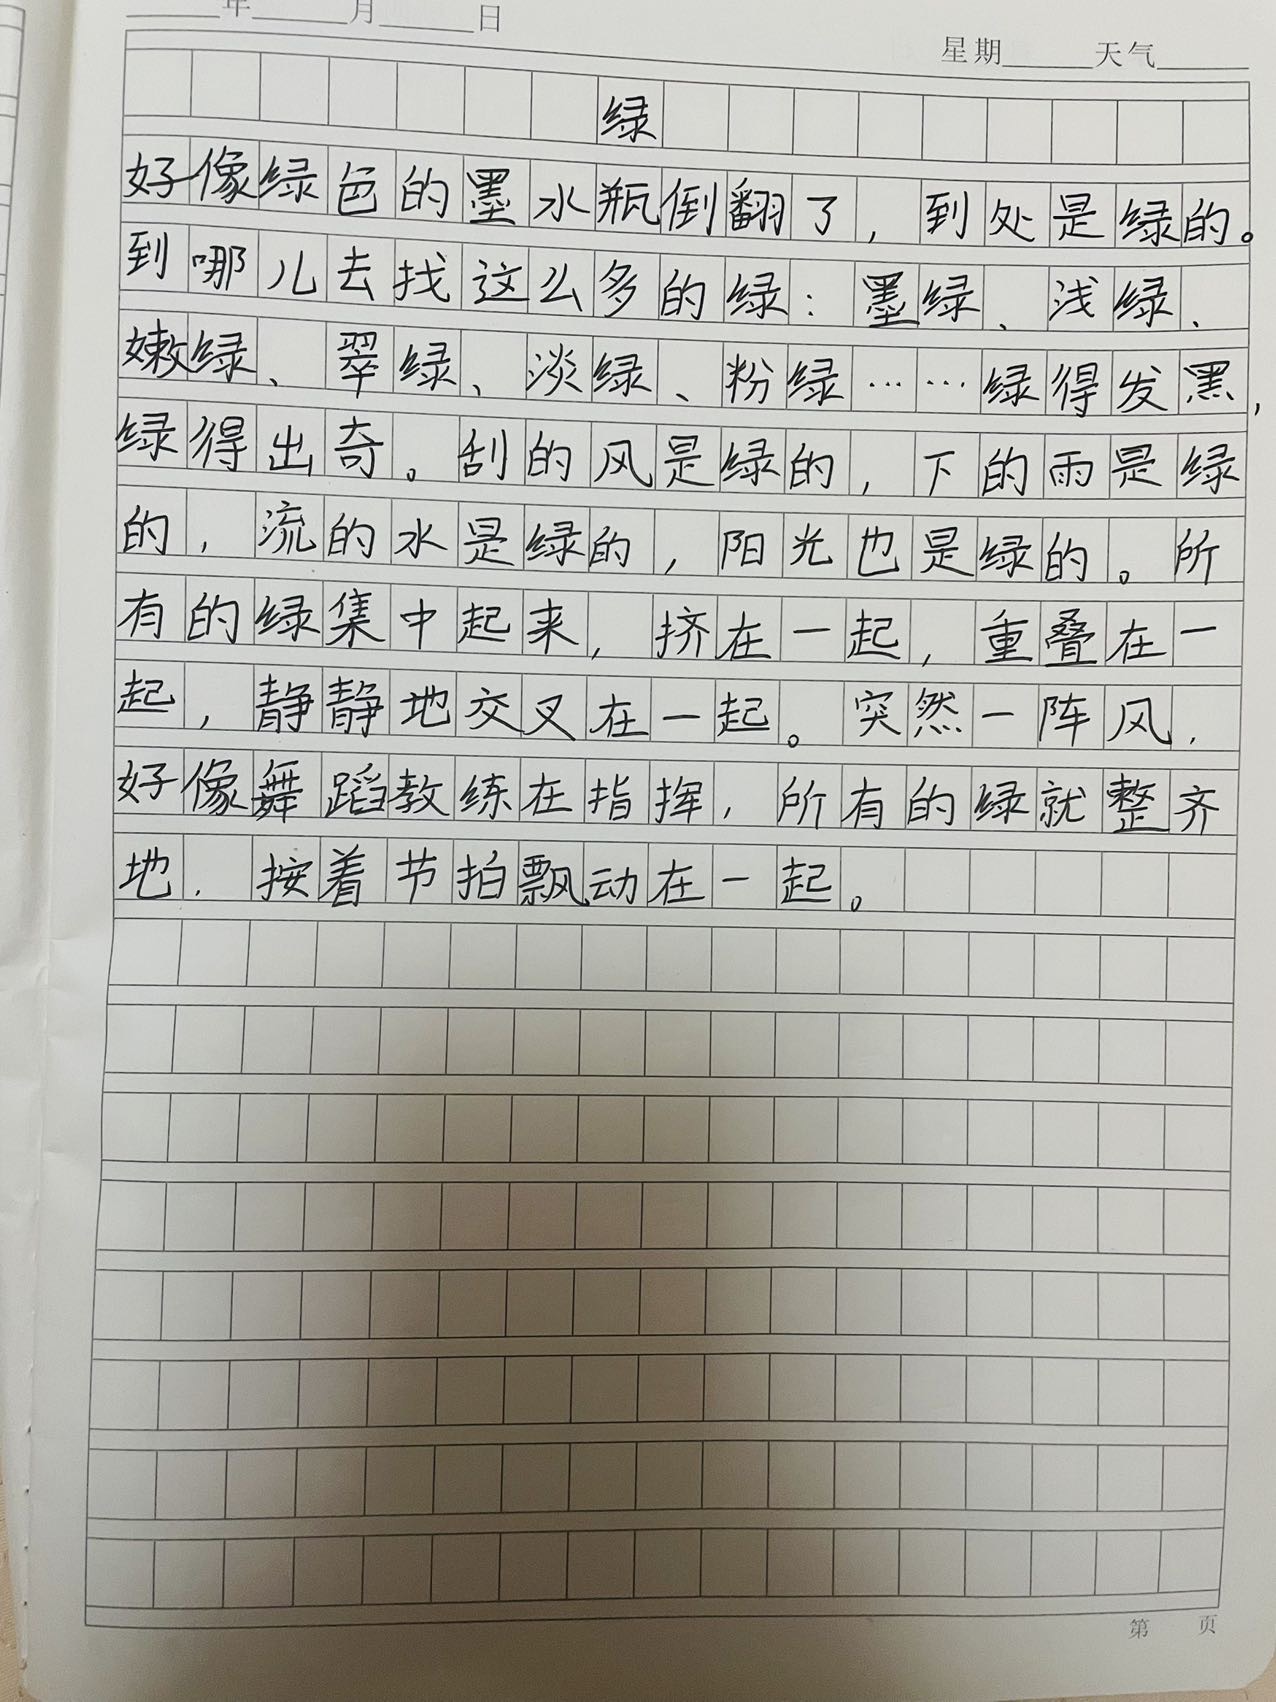 年 月 日
星期 天气
绿
好像绿色的墨水瓶倒翻了，到处是绿的。
到哪儿去找这么多的绿：墨绿、浅绿、
嫩绿、翠绿、淡绿、粉绿……绿得发黑，
绿得出奇。刮的风是绿的，下的雨是绿
的，流的水是绿的，阳光也是绿的。所
有的绿集中起来，挤在一起，重叠在一
起，静静地交叉在一起。突然一阵风，
好像舞蹈教练在指挥，所有的绿就整齐
地，按着节拍飘动在一起。
第 页